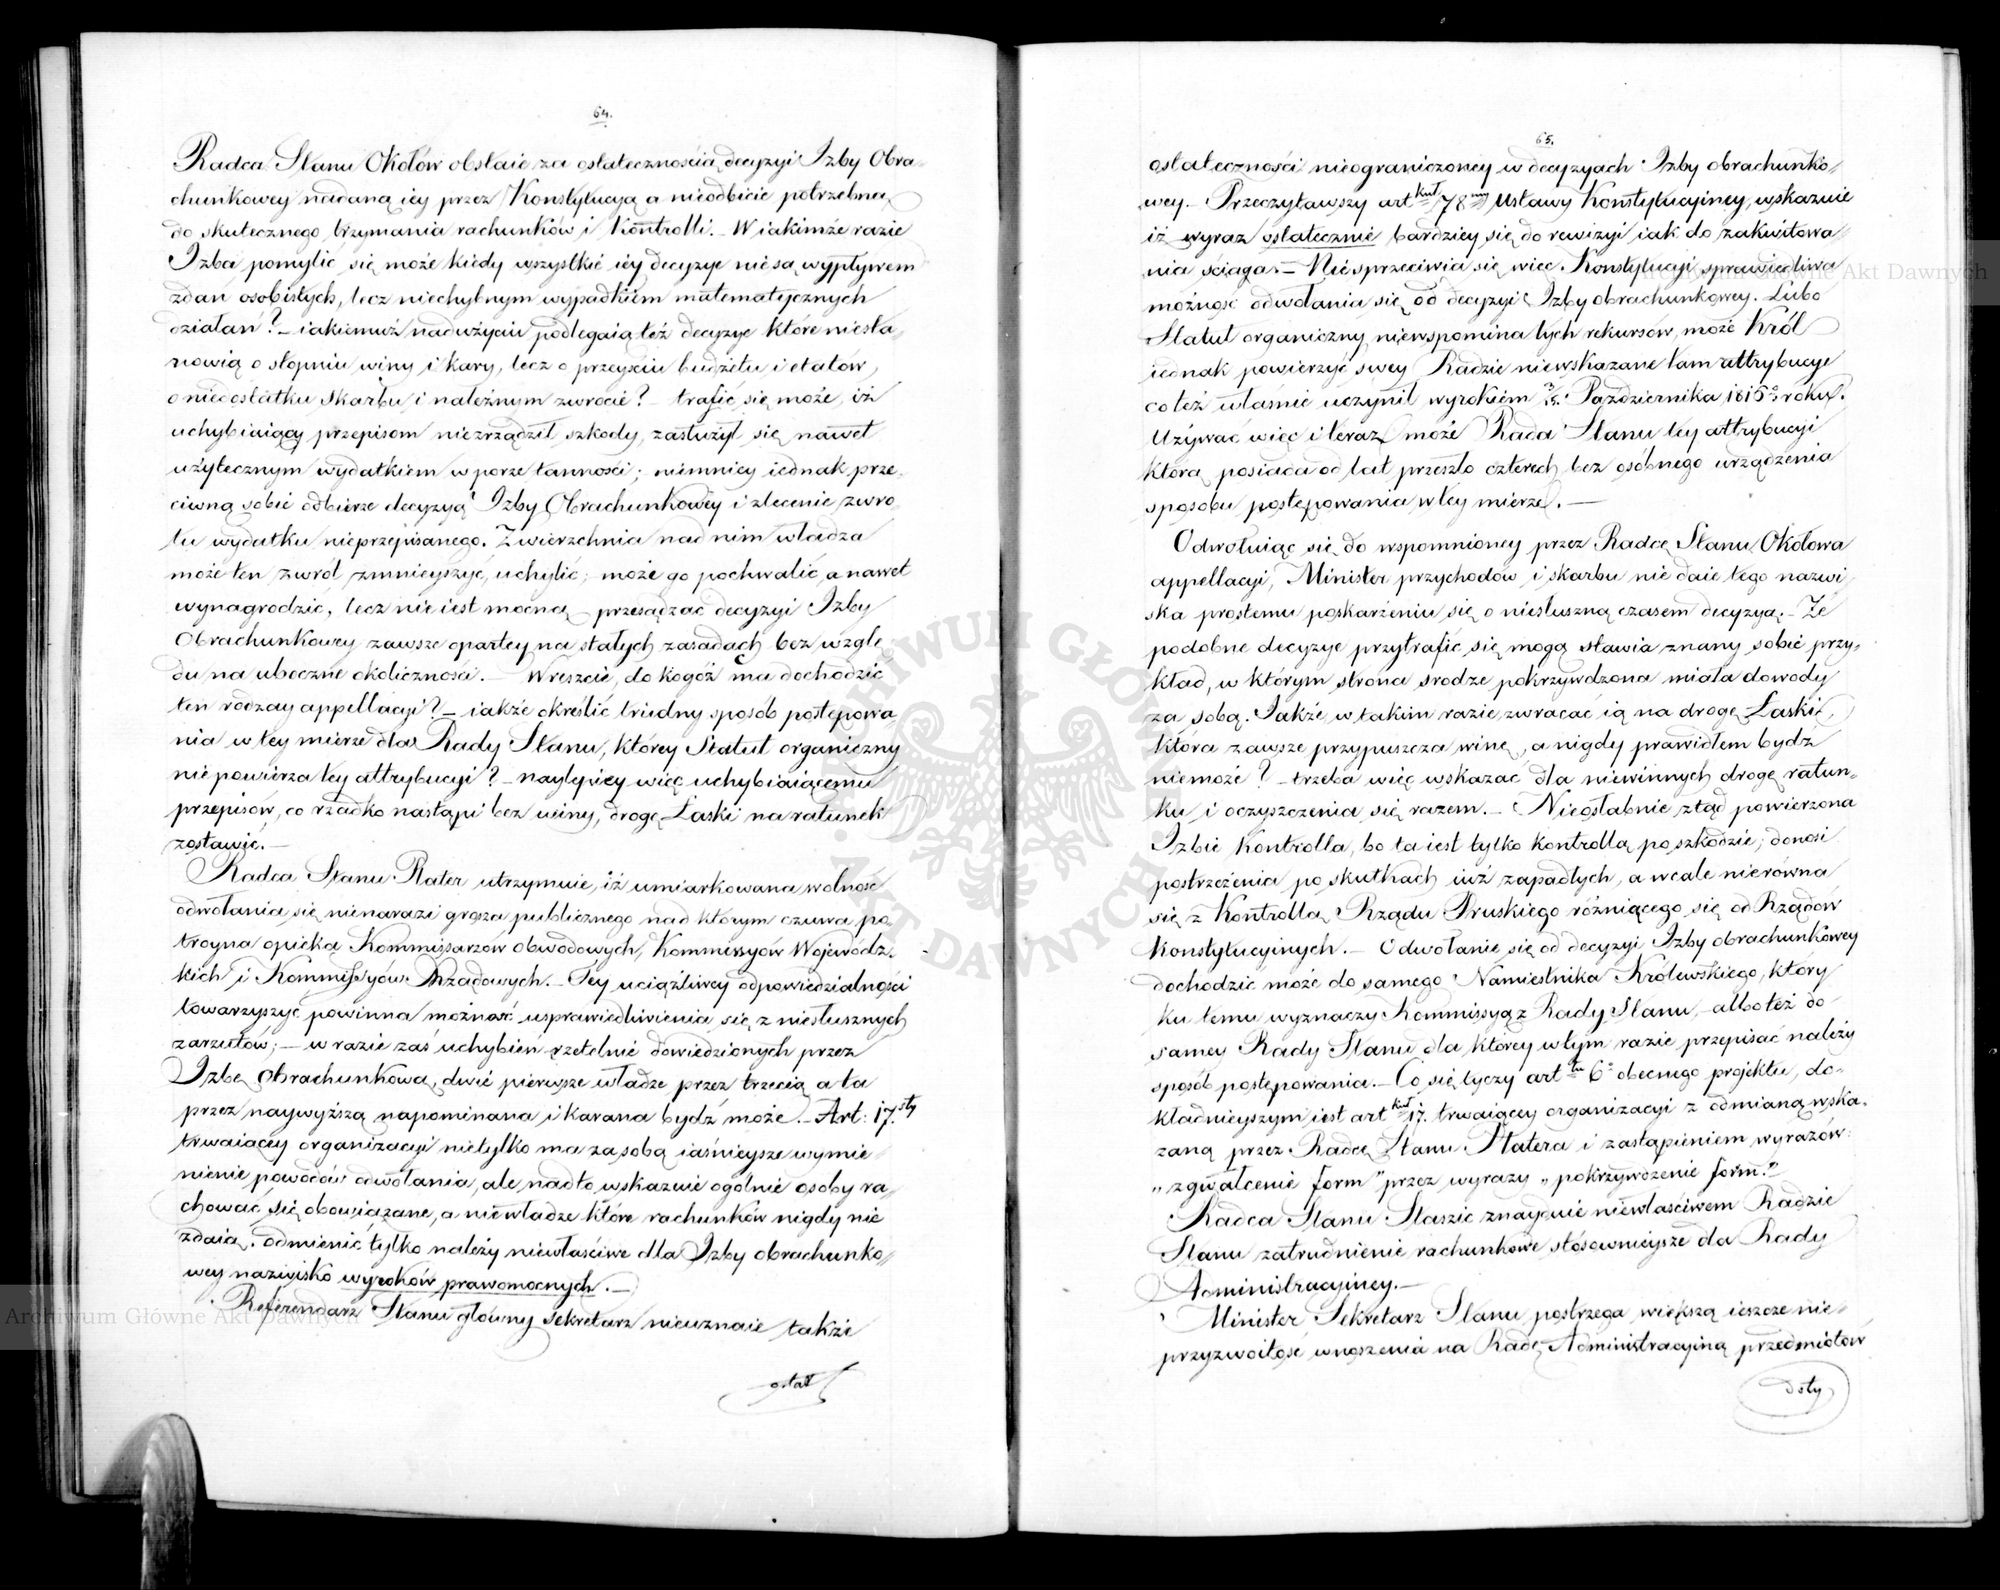 64.
Radca Stanu Okołów obstaie za ostatecznością decyzyi Izby Obra-
chunkowey nadaną iey przez Konstytucyą a nieodbicie potrzebną
do skutecznego trzymania rachunków i Kontrolli. – W iakimże razie
Izba pomylić się może kiedy wszystkie iéy decyzye nie są wypływem
zdań osobistych, lecz niechybnym wypadkiem matematycznych
działań? – iakiemuż nadużyciu podlegaią też decyzye które niesta-
nowią o stopniu winy i kary, lecz o przeyściu budżetu i etatów,
o niedostatku Skarbu i należnym zwrocie? – trafić się może, iż
uchybiaiący przepisom niezrządził szkody, zasłużył się nawet
użytecznym wydatkiem w porze tanności; niemniey iednak prze-
ciwną sobie odbierze decyzyą Izby Obrachunkowéy i zlecenie zwro-
tu wydatku nieprzepisanego. Zwierzchnia nad nim władza
może ten zwrot zmnieyszyć, uchylić; może go pochwalić, a nawet
wynagrodzić, lecz nie iest mocną przesądzać decyzyi Izby
Obrachunkowey zawsze opartey na stałych zasadach bez wzglę-
du na uboczne okoliczności. – Wreszcie, do kogóż ma dochodzić
ten rodzay appellacyi? – iakże określić trudny sposób postępowa-
nia w tey mierze dla Rady Stanu, którey Statut organiczny
niepowierza tey attrybucyi? – naylepiey więc uchybiaiącemu
przepisów, co rzadko nastąpi bez winy, drogę Łaski na ratunek
zostawić. –
Radca Stanu Plater utrzymuie, iż umiarkowana wolność
odwołania się nienarazi grosza publicznego nad którym czuwa po-
troyna opieka Kommissarzów Obwodowych, Kommissyów Wojewódz-
kich i Kommissyów Rządowych. – Tey uciążliwey odpowiedzialności
towarzyszyć powinna możność usprawiedliwienia się z niesłusznych
zarzutów; – w razie zaś uchybień rzetelnie dowiedzionych przez
Izbę Obrachunkową, dwie pierwsze władze przez trzecią a ta
przez naywyższą napominana i karana bydź może. – Art: 17.sty
trwaiącey organizacyi nietylko ma za sobą iaśnieysze wymie-
nienie powodów odwołania, ale nadto wskazuie ogólnie osoby ra-
chować się obowiązane, a niewładze które rachunków nigdy nie
zdaią. odmienić tylko należy niewłaściwe dla Izby obrachunko-
wey nazwisko wyroków prawomocnych. –
Referendarz Stanu główny Sekretarz nieuznaie także
ostat
65.
ostateczności nieograniczoney w decyzyach Izby obrachunko-
wey. – Przeczytawszy art kuł 78my Ustawy Konstytucyiney, wskazuie
iż wyraz ostatecznie bardziey się do rewizyi iak do zakwitowa-
nia ściąga. – Niesprzeciwia się więc Konstytucyi sprawiedliwa
możność odwołania się od decyzyi Izby obrachunkowey. Lubo
Statut organiczny niewspomina tych rekursow, może Król
iednak powierzyć swey Radzie niewskazane tam attrybucye
co też właśnie uczynił wyrokiem 3/15 Października 1816o roku.
Używać więc i teraz może Rada Stanu tey attrybucyi
którą posiada od lat przeszło czterech bez osóbnego urządzenia
sposobu postępowania w tey mierze. –
Odwołuiąc się do wspomnioney przez Radcę Stanu Okołowa
appellacyi, Minister przychodów i skarbu nie daie tego nazwi-
ska prostemu poskarżeniu się o niesłuszną czasem decyzyą. – Że
podobne decyzye przytrafić się mogą stawia znany sobie przy-
kład, w którym strona srodze pokrzywdzona miała dowody
za sobą. Jakże w takim razie zwracać ią na drogę Łaski,
która zawsze przypuszcza winę, a nigdy prawidłem bydź
niemoże? – trzeba więc wskazać dla niewinnych drogę ratun-
ku i oczyszczenia się razem. – Nieosłabnie ztąd powierzona
Izbie Kontrolla, bo ta iest tylko kontrollą po szkodzie; donosi
postrzeżenia po skutkach iuż zapadłych, a wcale nierówna
się z Kontrollą Rządu Pruskiego różniącego się od Rządów
Konstytucyinych. – Odwołanie się od decyzyi Izby obrachunkowey
dochodzić może do samego Namiestnika Królewskiego, który
ku temu wyznaczy Kommissyą z Rady Stanu, albo też do
samey Rady Stanu dla którey w tym razie przepisać należy
sposób postępowania. – Co się tyczy art łu 6o obecnego projektu, do-
kładnieyszym iest art kuł 17. trwaiącey organizacyi z odmianą wska-
zaną przez Radcę Stanu Platera i zastąpieniem wyrazów:
„zgwałcenie form” przez wyrazy „pokrzywdzenie form.”
Radca Stanu Staszic znayduie niewłaściwem Radzie
Stanu zatrudnienie rachunkowe stósownieysze dla Rady
Administracyiney. –
Minister Sekretarz Stanu postrzega większą ieszcze nie-
przyzwoitość wnoszenia na Radę Administracyiną przedmiotów
doty
ARCHIWUM GŁÓWNE AKT DAWNYCH
Archiwum Główne Akt Dawnych
Archiwum Główne Akt Dawnych